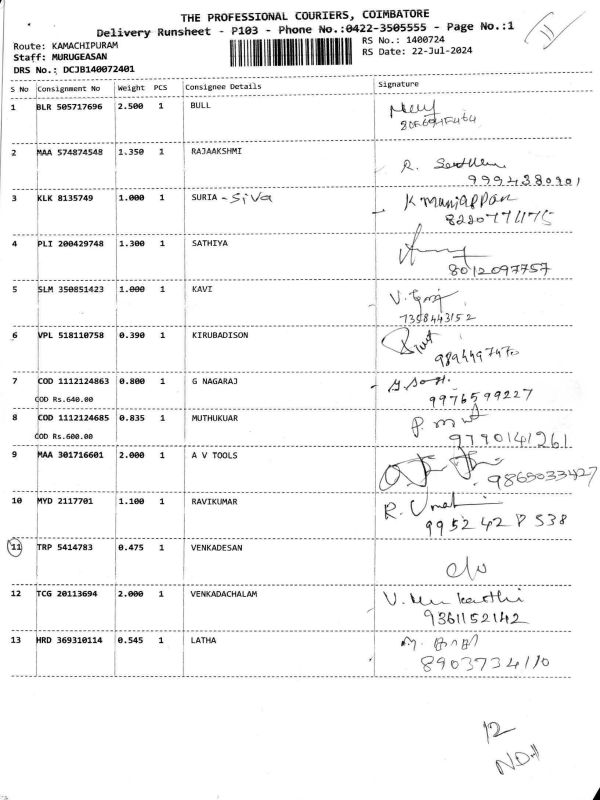 THE PROFESSIONAL COURIERS, COIMBATORE
Delivery Runsheet - P103 - Phone No.:0422-3505555 - Page No.:1
Route: KAMACHIPURAM
RS No.: 1400724
Staff: MURUGEASAN
RS Date: 22-Jul-2024
DRS No.: DCJB140072401
S No Consignment No Weight PCS Consignee Details Signature
1 BLR 505717696 2.500 1 BULL
2 MAA 574874548 1.350 1 RAJAAKSHMI
R.
9994380901
3 KLK 8135749 1.000 1 SURIA - Siva
K Muniappan
4 PLI 200429748 1.300 1 SATHIYA
8012097757
5 SLM 350851423 1.000 1 KAVI
7358443152
6 VPL 518110758 0.390 1 KIRUBADISON
9894497470
7 COD 1112124863 0.800 1 G NAGARAJ
COD Rs.640.00
9976599227
8 COD 1112124685 0.835 1 MUTHUKUAR
COD Rs.600.00
9790141261
9 MAA 301716601 2.000 1 A V TOOLS
9865033427
10 MYD 2117701 1.100 1 RAVIKUMAR
R. Uma
9952428538
11 TRP 5414783 0.475 1 VENKADESAN
12 TCG 20113694 2.000 1 VENKADACHALAM
9361152142
13 HRD 369310114 0.545 1 LATHA
8903734110
12